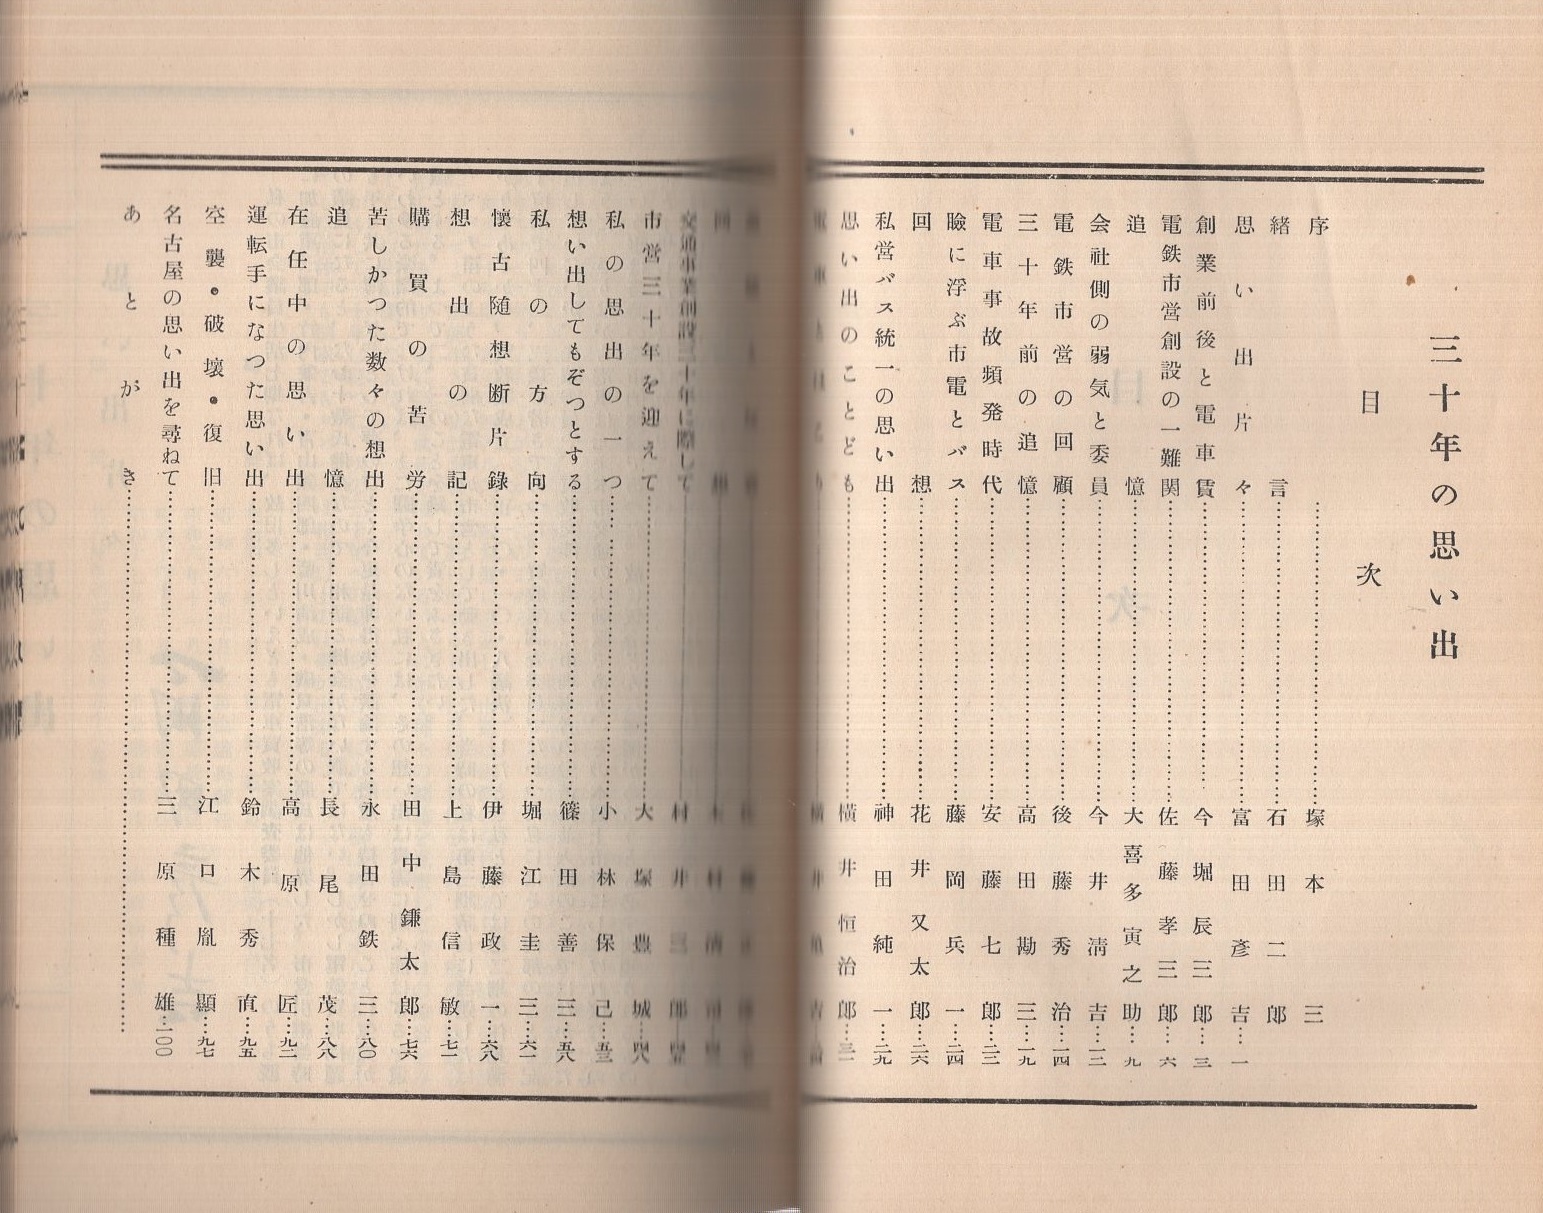 三十年の思い出
目次
序……塚本三
緒言……石田二郎
思い出片々……富田彥吉…一
創業前後と電車賃……今堀辰三郎…三
電鉄市営創設の一難関……佐藤孝三郎…六
追憶……大喜多寅之助…九
会社側の弱気と委員……今井淸吉…一三
電鉄市営の回顧……後藤秀治…一四
三十年前の追憶……高田勘三…一九
電車事故頻発時代……安藤七郎…二三
険に浮ぶ市電とバス……藤岡兵一…二四
回想……花井又太郎…二六
私営バス統一の思い出……神田純一…二九
思い出のことども……横井恒治郎…三一
交通事業創設三十年に際して……村井三郎
市営三十年を迎えて……大塚豊城…四八
私の思出の一つ……小林保己…五三
想い出してもぞつとする……篠田善三…五八
私の方向……堀江圭三…六一
懷古随想断片錄……伊藤政一…六八
想出の記……上島信敏…七一
購買の苦労……田中鎌太郎…七六
苦しかつた数々の想出……永田鉄三…八〇
追憶……長尾茂…八八
在任中の思い出……高原匠…九二
運転手になつた思い出……鈴木秀直…九五
空襲・破壊・復旧……江口胤顯…九七
名古屋の思い出を尋ねて……三原種雄…一〇〇
あとがき……